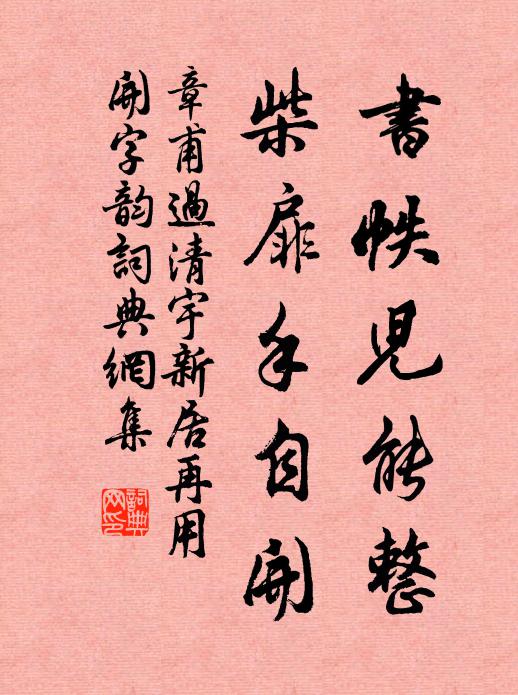 書帙児能整
柴扉手自開
章甫過清宇新居再用
開字韵詞典網集
詞典網印